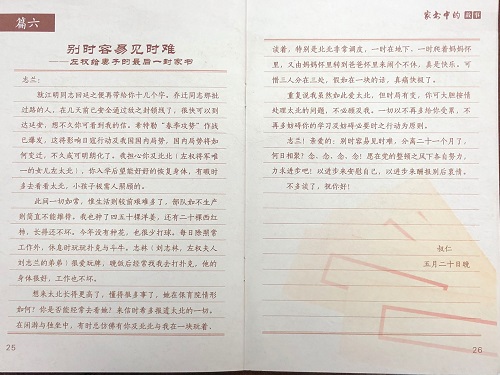 篇六
别时容易见时难
——左权给妻子的最后一封家书
志兰：
就江明同志回延之便再带给你十几个字。乔迁同志那批
过路的人，在几天前已安全通过敌之封锁线了，很快可以到
达延安，想不久你可看到我的信。希特勒“春季攻势”作战
已爆发，这将影响日寇行动及我国国内局势，国内局势将如
何变迁，不久或可明朗化了。我担心你及北北（左权将军唯
一的女儿左太北），你入学后望能好好的恢复身体，有暇时
多去看看太北，小孩子极需人照顾的。
此间一切如常，惟生活则较前艰难多了，部队如不生产
则简直不能维持。我也种了四五十棵洋姜，还有二十棵西红
柿，长得还不坏。今年没有种花，也很少打球。每日除照常
工作外，休息时玩玩扑克与斗牛。志林（刘志林，左权夫人
刘志兰的弟弟）很爱玩牌，晚饭后经常找我去打扑克，他的
身体很好，工作也不坏。
想来太北长得更高了，懂得很多事了，她在保育院情形
如何？你是否能经常去看她？来信时希多报道太北的一切。
在闲游与独坐中，有时总仿佛有你及北北与我在一块玩着、
25
家书中的故事
谈着，特别是北北非常调皮，一时在地下、一时爬着妈妈怀
里，又由妈妈怀里转到爸爸怀里来闹个不休，真是快乐。可
惜三人分在三处，假如在一块的话，真痛快极了。
重复说我虽然如此爱太北，但时局有变，你可大胆按情
处理太北的问题，不必顾及我。一切以不再多给你受累，不
再多妨碍你的学习及妨碍必要时之行动为原则。
志兰！亲爱的：别时容易见时难，分离二十一个月了，
何日相聚？念、念、念、念！愿在党的整顿之风下各自努力，
力求进步吧！以进步来安慰自己，以进步来酬报别后衷情。
不多谈了，祝你好！
叔仁
五月二十日晚
26